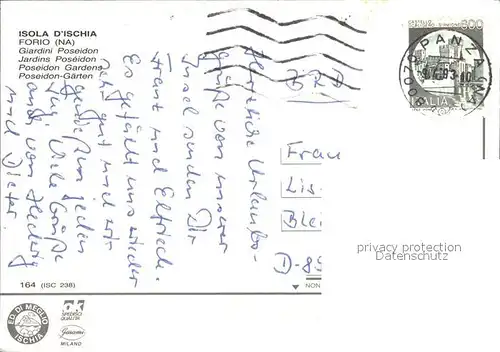 ISOLA D'ISCHIA
FORIO (NA)
Giardini Poseidon
Jardins Poséidon
Poseidon Gardens
Poseidon-Gärten
Herzliche Urlaubs-
grüße von unserer
Insel senden Dir
Franz und Elfriede.
Es gefällt uns wieder
sehr gut und wir
genießen jeden
Tag. Viele Grüße
auch von Hedwig
und Dieter.
600
80070 PANZA (NA)
ITALIA
BRD
Frau
Lis
Blei
D-85
privacy protection
Datenschutz
164 (ISC 238)
NON
ED. DI MEGLIO
ISCHIA
MILANO